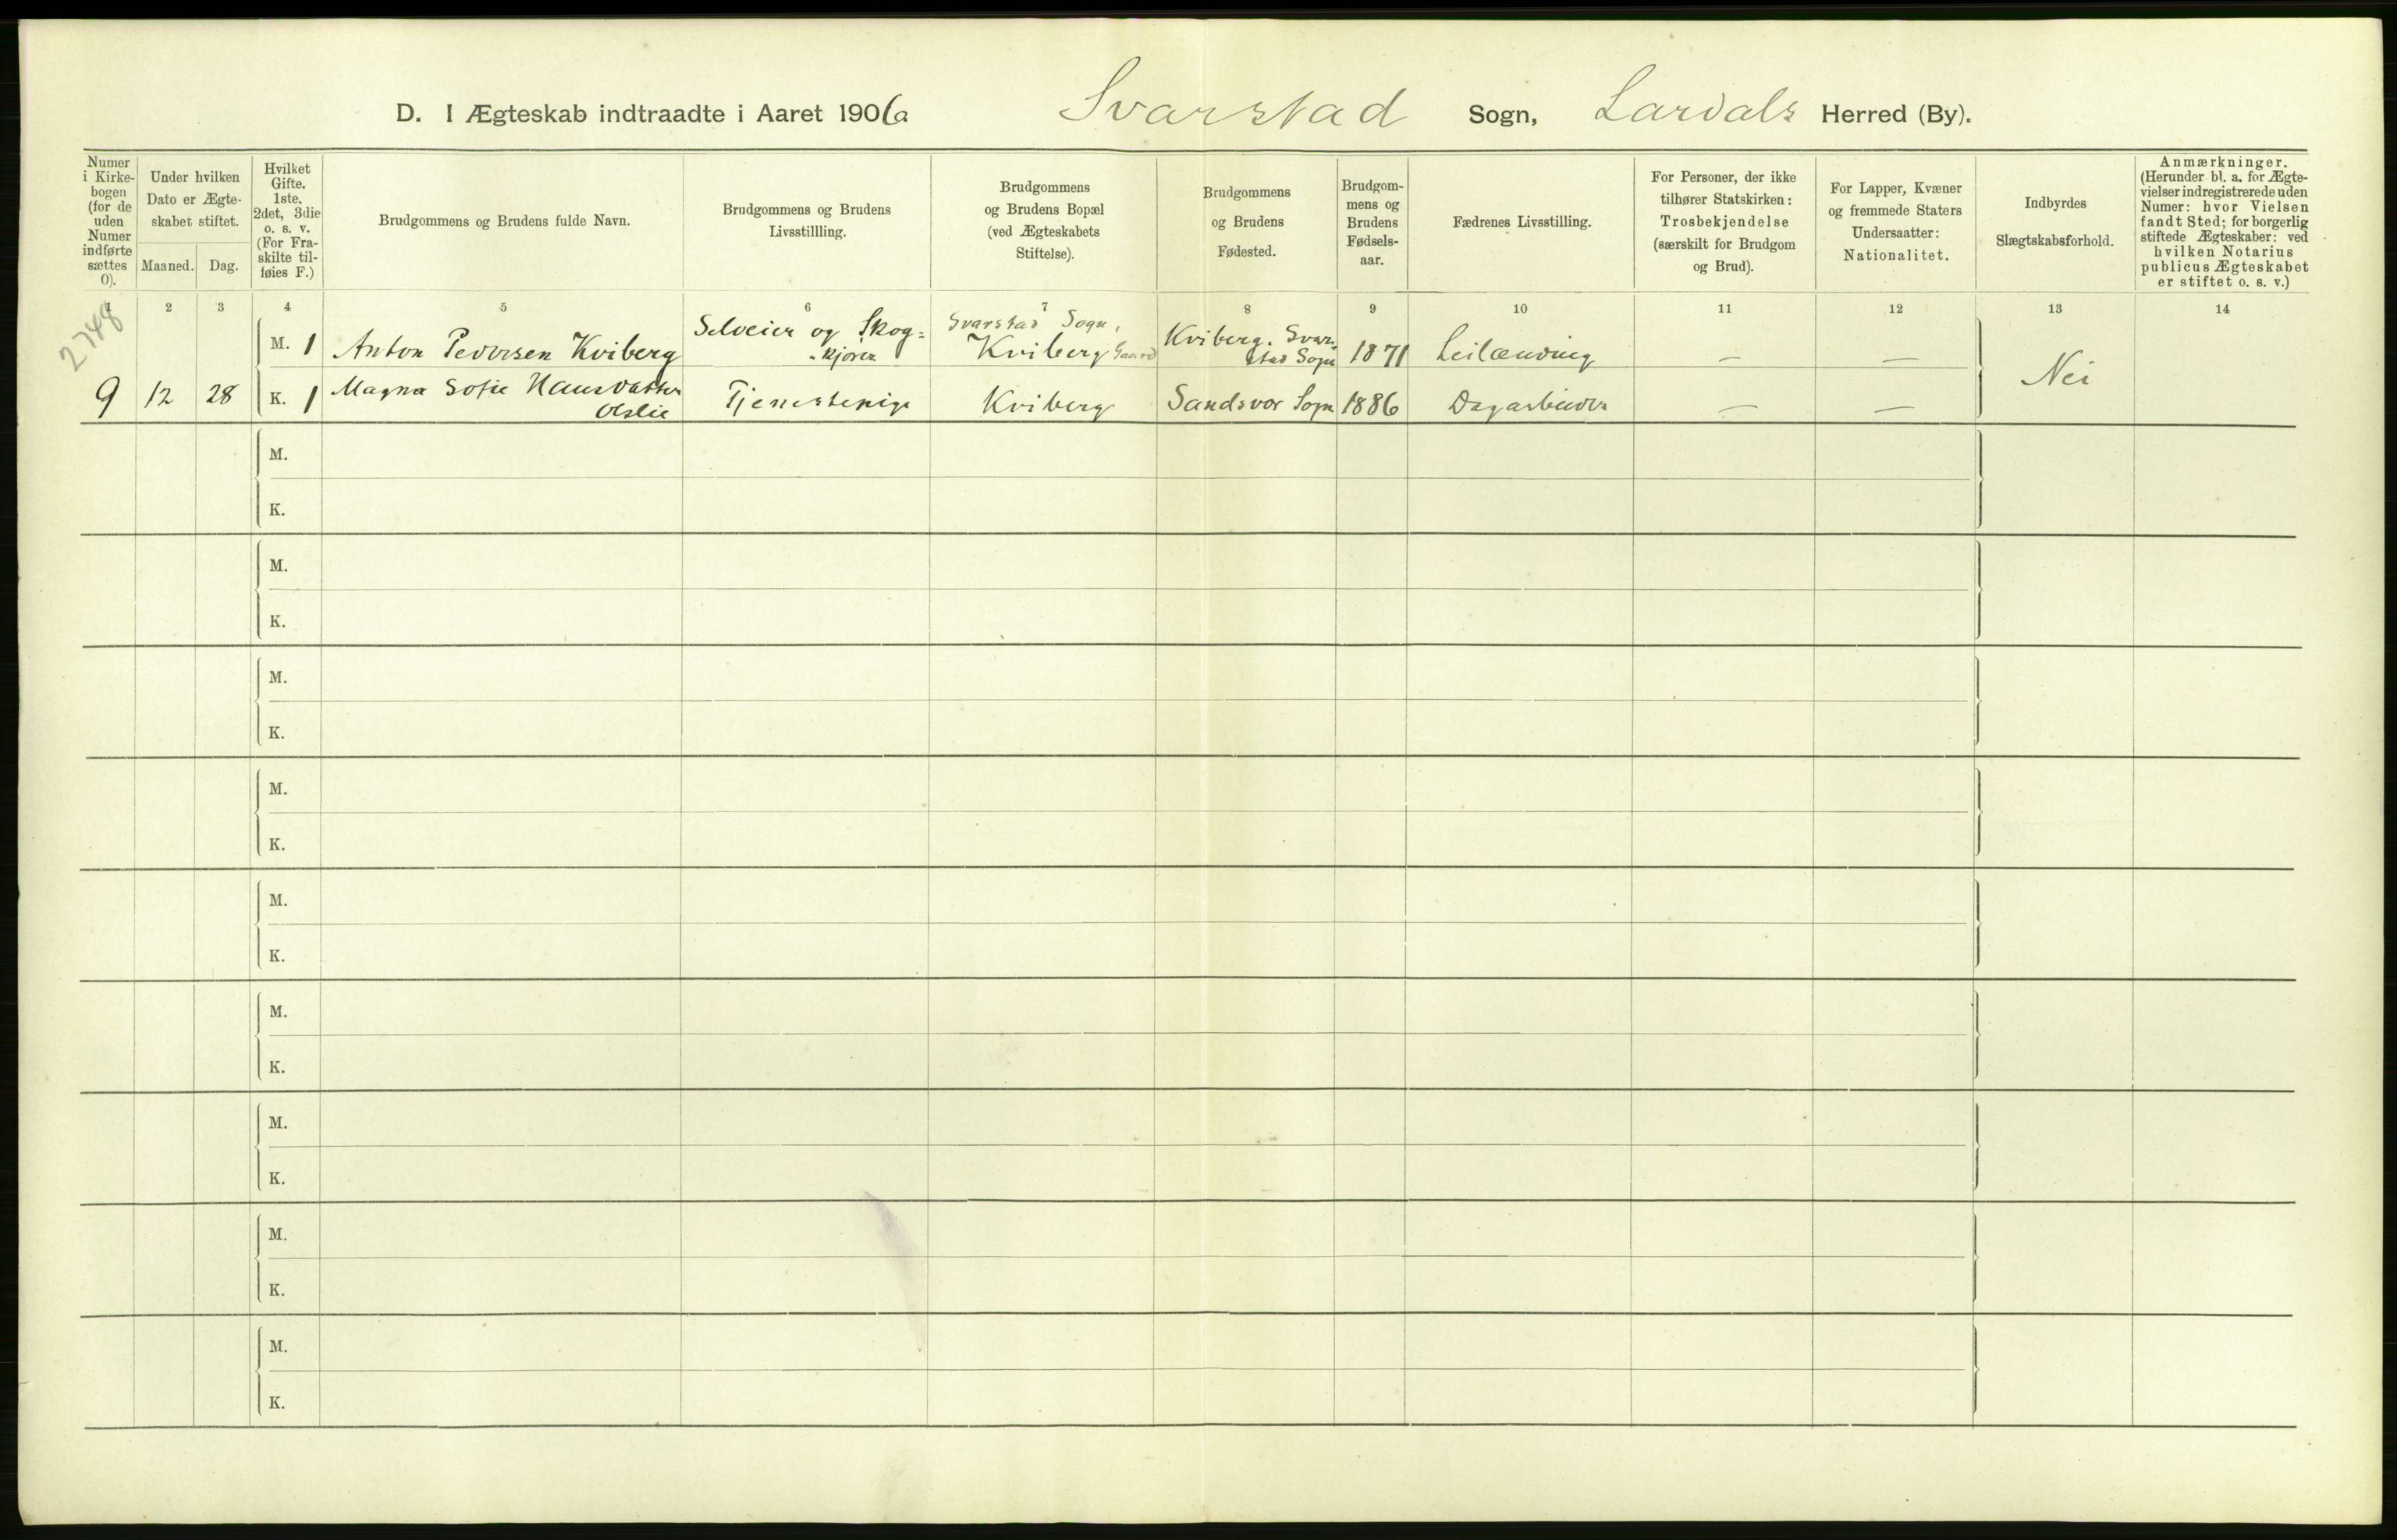 D. I Ægteskab indtraadte i Aaret 1906 Svarstad Sogn, Lardals Herred (By).
Numer
i Kirke-
bogen
(for de
uden
Numer
indførte
sættes
0).
Under hvilken
Dato er Ægte-
skabet stiftet.
Maaned. Dag.
Hvilket
Gifte.
1ste,
2det, 3die
o. s. v.
(For Fra-
skilte til-
føies F.)
Brudgommens og Brudens fulde Navn.
Brudgommens og Brudens
Livsstillling.
Brudgommens
og Brudens Bopæl
(ved Ægteskabets
Stiftelse).
Brudgommens
og Brudens
Fødested.
Brudgom-
mens og
Brudens
Fødsels-
aar.
Fædrenes Livsstilling.
For Personer, der ikke
tilhører Statskirken:
Trosbekjendelse
(særskilt for Brudgom
og Brud).
For Lapper, Kvæner
og fremmede Staters
Undersaatter:
Nationalitet.
Indbyrdes
Slægtskabsforhold.
Anmærkninger.
(Herunder bl. a. for Ægte-
vielser indregistrerede uden
Numer: hvor Vielsen
fandt Sted; for borgerlig
stiftede Ægteskaber: ved
hvilken Notarius
publicus Ægteskabet
er stiftet o. s. v.)
1 2 3 4 5 6 7 8 9 10 11 12 13 14
2748
M. 1 Anton Pedersen Kviberg Selveier og Skog=
-kjører Svarstad Sogn,
Kviberg Gaard Kviberg. Svar-
stad Sogn 1871 Leilænding — —
9 12 28 K. 1 Magna Sofie Hansdatter
Olslie Tjenestepige Kviberg Sandsvær Sogn 1886 Dagarbeider — — Nei
M.
K.
M.
K.
M.
K.
M.
K.
M.
K.
M.
K.
M.
K.
M.
K.
M.
K.